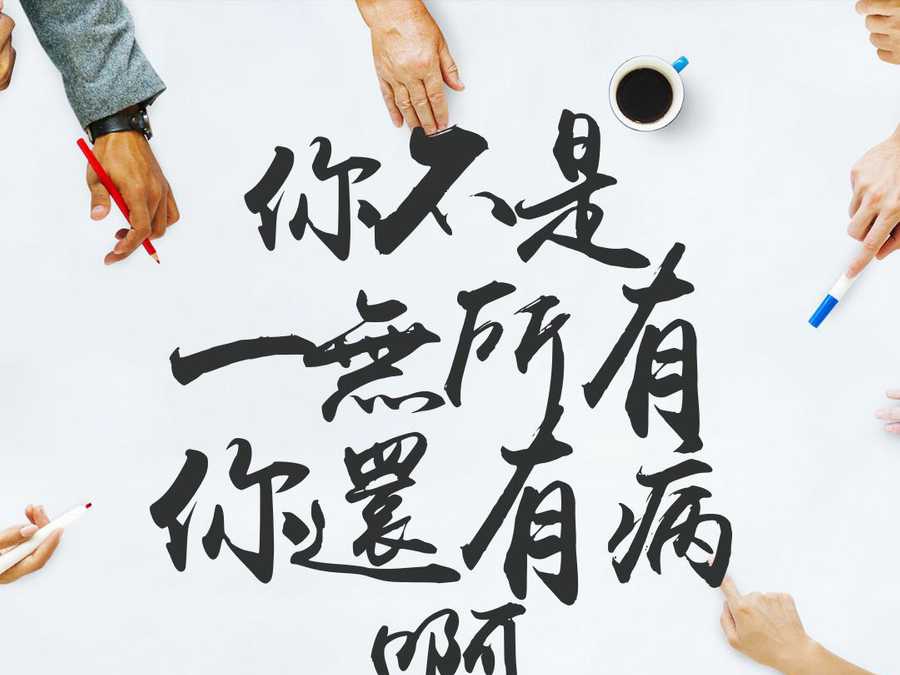 你不是
一無所有
你還有病
啊